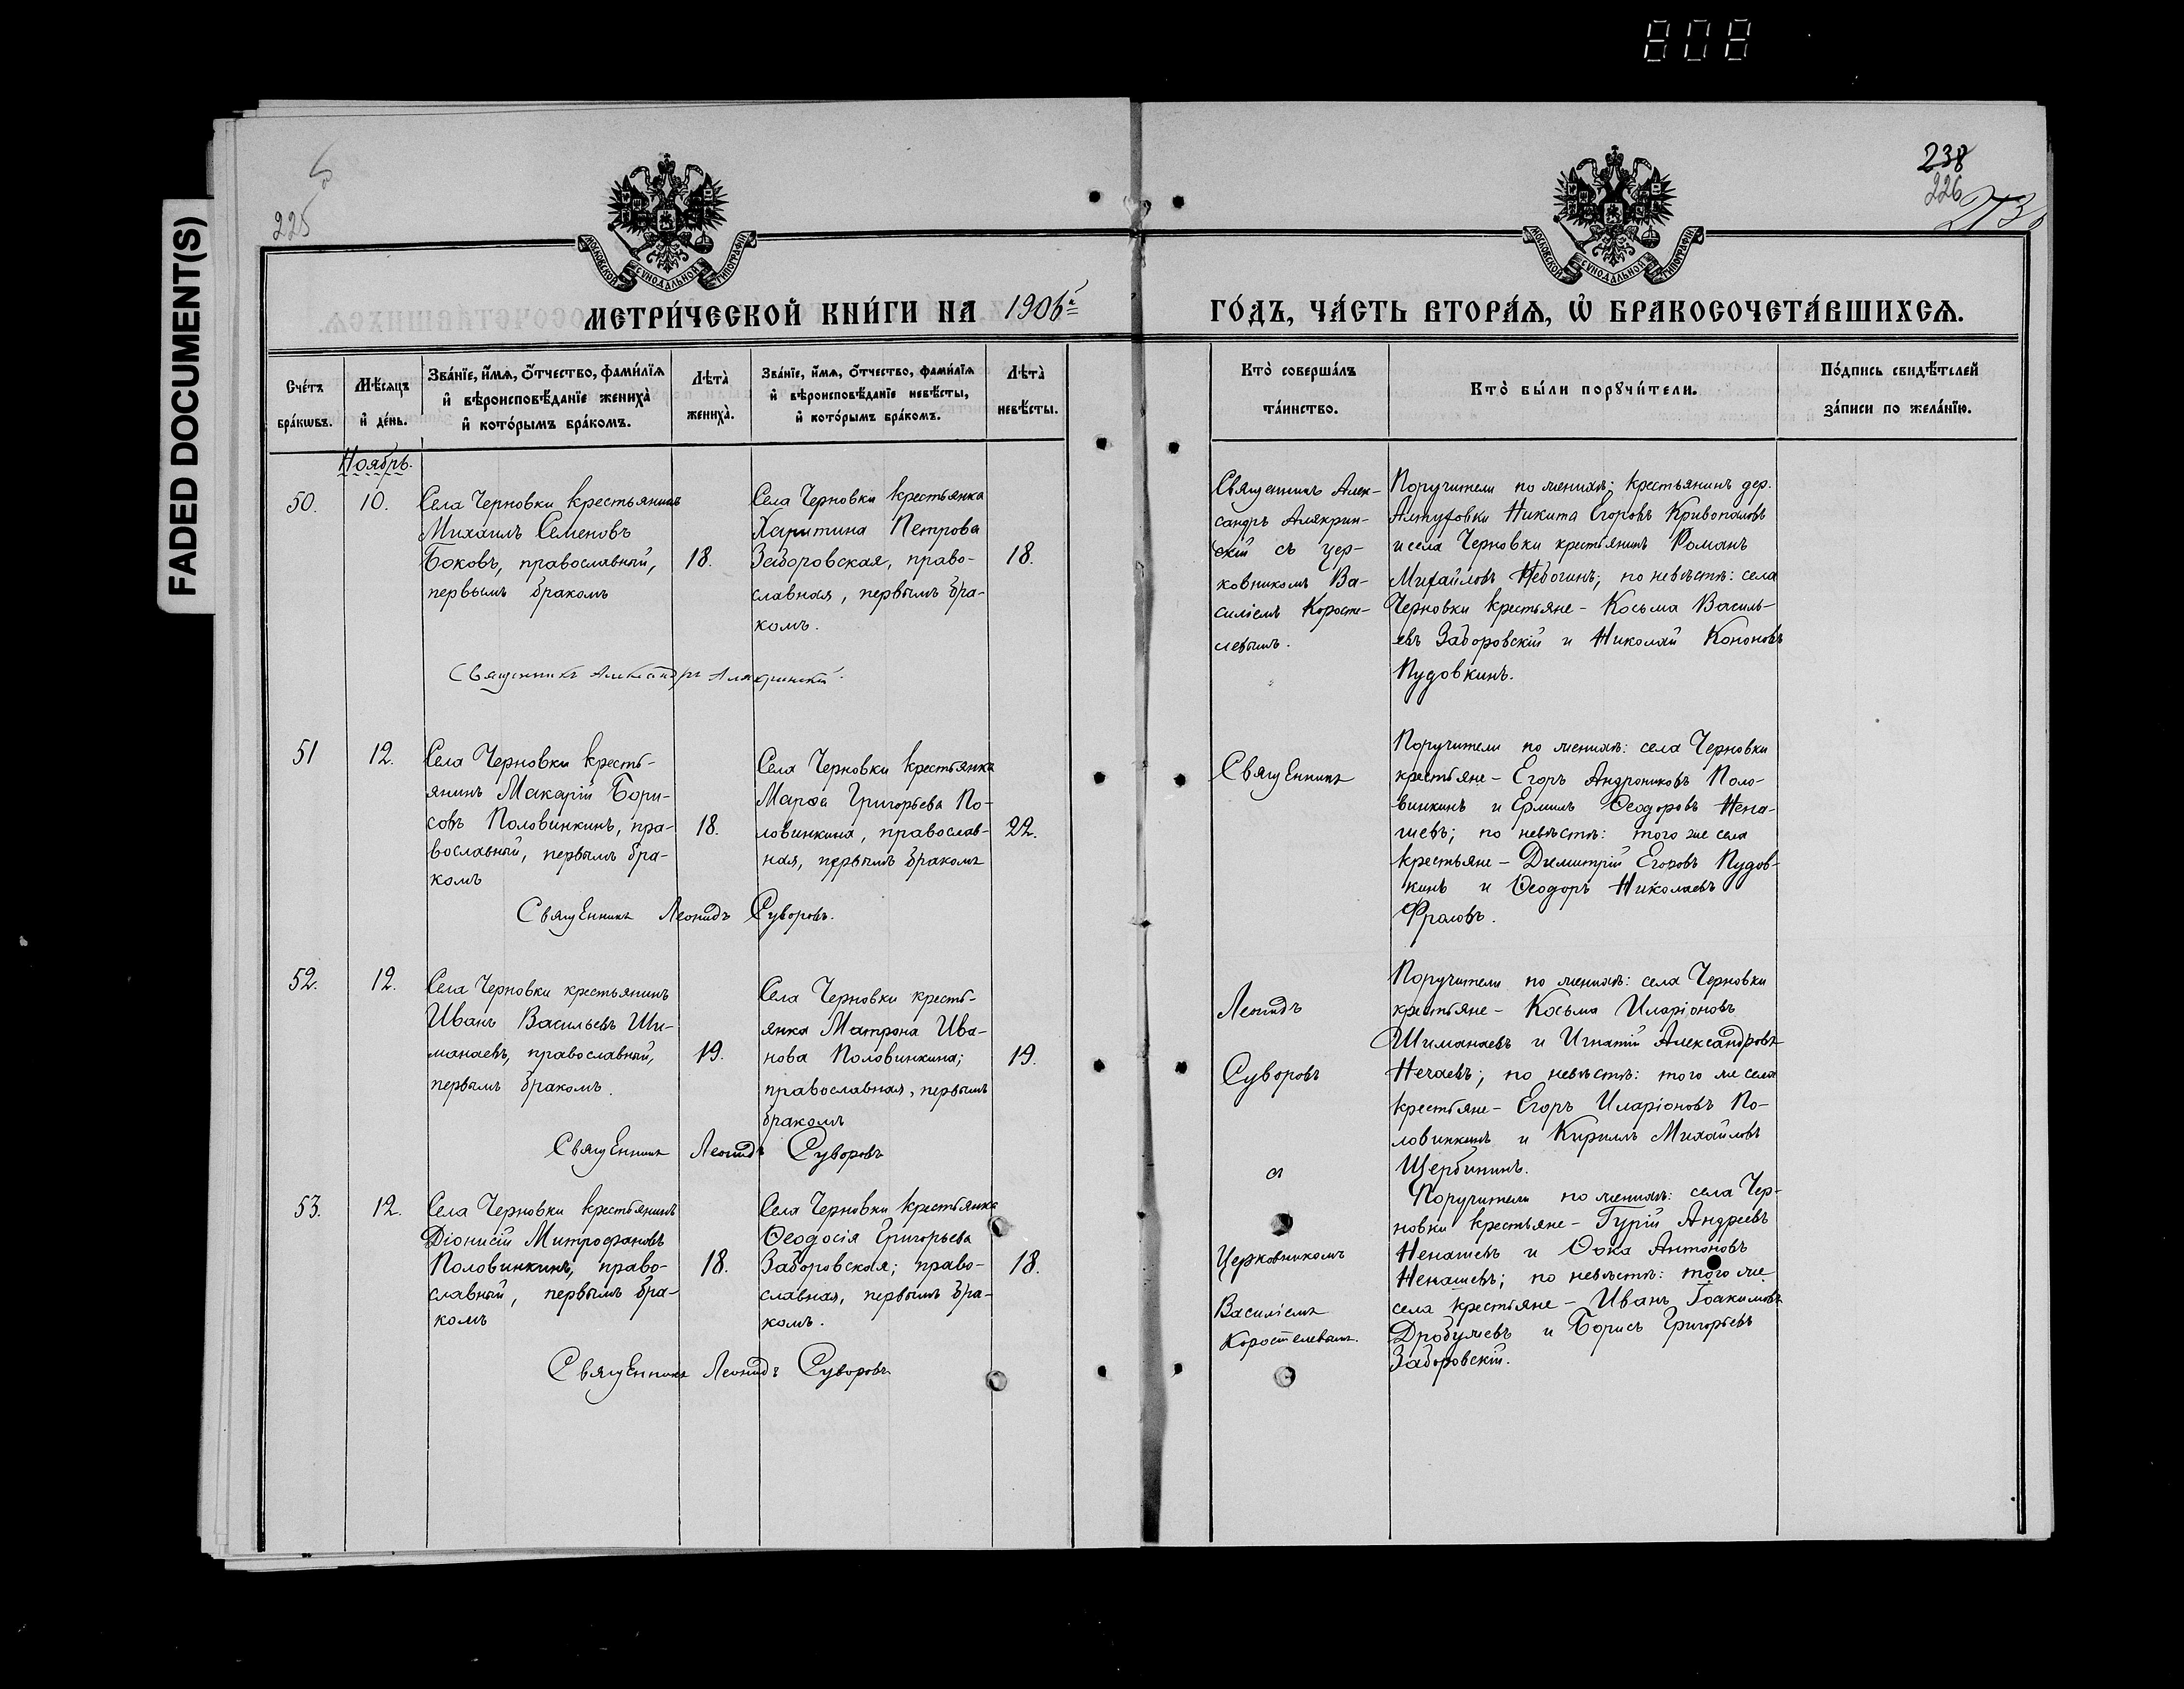 808
FADED DOCUMENT(S)
225
238
226
МОСКОВСКОЙ СѴНОДАЛЬНОЙ ТИПОГРАФІИ
МОСКОВСКОЙ СѴНОДАЛЬНОЙ ТИПОГРАФІИ
МЕТРИ́ЧЕСКОЙ КНИ́ГИ НА 1906й
ГО́ДЪ, ЧА́СТЬ ВТОРА́Ѧ, Ѡ҆ БРАКОСОЧЕТА́ВШИХСѦ.
Сче́тъ
бра́кѡвъ.
Мѣ́сѧцъ
и҆ де́нь.
Зва́нїе, и҆́мѧ, ѻ҆́тчество, фами́лїѧ
и҆ вѣроисповѣ́данїе жениха̀
и҆ кото́рымъ бра́комъ.
Лѣта̀
жениха̀.
Зва́нїе, и҆́мѧ, ѻ҆́тчество, фами́лїѧ
и҆ вѣроисповѣ́данїе невѣ́сты,
и҆ кото́рымъ бра́комъ.
Лѣта̀
невѣ́сты.
Кто̀ соверша́лъ
та́инство.
Кто̀ бы́ли порꙋчи́тели.
По́дпись свидѣ́телей
за́писи по жела́нїю.
Ноябрь.
50.
10.
Села Черновки крестьянинъ
Михаилъ Семеновъ
Боковъ, православный,
первымъ бракомъ
18.
Села Черновки крестьянка
Харитина Петрова
Заборовская, право-
славная, первымъ бра-
комъ.
18.
Священникъ Алек-
сандръ Алякрин-
скій съ цер-
ковникомъ Ва-
силіемъ Корост-
елевымъ.
Поручители по женихѣ: крестьянинъ дер.
Алтуфовки Никита Егоровъ Кривопаловъ
и села Черновки крестьянинъ Романъ
Михайловъ Небогинъ; по невѣстѣ: села
Черновки крестьяне - Косьма Василь-
евъ Заборовскій и Николай Кононовъ
Пудовкинъ.
Священникъ Александръ Алякринскій.
51
12.
Села Черновки кресть-
янинъ Макарій Бори-
совъ Половинкинъ, пра-
вославный, первымъ бра-
комъ
18.
Села Черновки крестьянка
Марѳа Григорьева По-
ловинкина, православ-
ная, первымъ бракомъ
22.
Священникъ
Поручители по женихѣ: села Черновки
крестьяне - Егоръ Андрониковъ Поло-
винкинъ и Ермилъ Ѳеодоровъ Нена-
шевъ; по невѣстѣ: того же села
крестьяне - Димитрій Егоровъ Пудов-
кинъ и Ѳеодоръ Николаевъ
Фроловъ.
Священникъ Леонидъ Суворовъ.
52.
12.
Села Черновки крестьянинъ
Иванъ Васильевъ Ши-
манаевъ, православный,
первымъ бракомъ.
19.
Села Черновки кресть-
янка Матрона Ива-
нова Половинкина;
православная, первымъ
бракомъ
19.
Леонидъ
Суворовъ
Поручители по женихѣ: села Черновки
крестьяне - Косьма Иларіоновъ
Шиманаевъ и Игнатій Александровъ
Нечаевъ; по невѣстѣ: того же села
крестьяне - Егоръ Иларіоновъ По-
ловинкинъ и Кириллъ Михайловъ
Щербининъ.
Священникъ Леонидъ Суворовъ
53.
12.
Села Черновки крестьянинъ
Діонисій Митрофановъ
Половинкинъ, право-
славный, первымъ бра-
комъ
18.
Села Черновки крестьянка
Ѳеодосія Григорьева
Заборовская; право-
славная, первымъ бра-
комъ.
18.
съ
Церковникомъ
Василіемъ
Коростелевымъ.
Поручители по женихѣ: села Чер-
новки крестьяне - Гурій Андреевъ
Ненашевъ и Ѳока Антоновъ
Ненашевъ; по невѣстѣ: того же
села крестьяне - Иванъ Іоакимовъ
Дробужевъ и Борисъ Григорьевъ
Заборовскій.
Священникъ Леонидъ Суворовъ